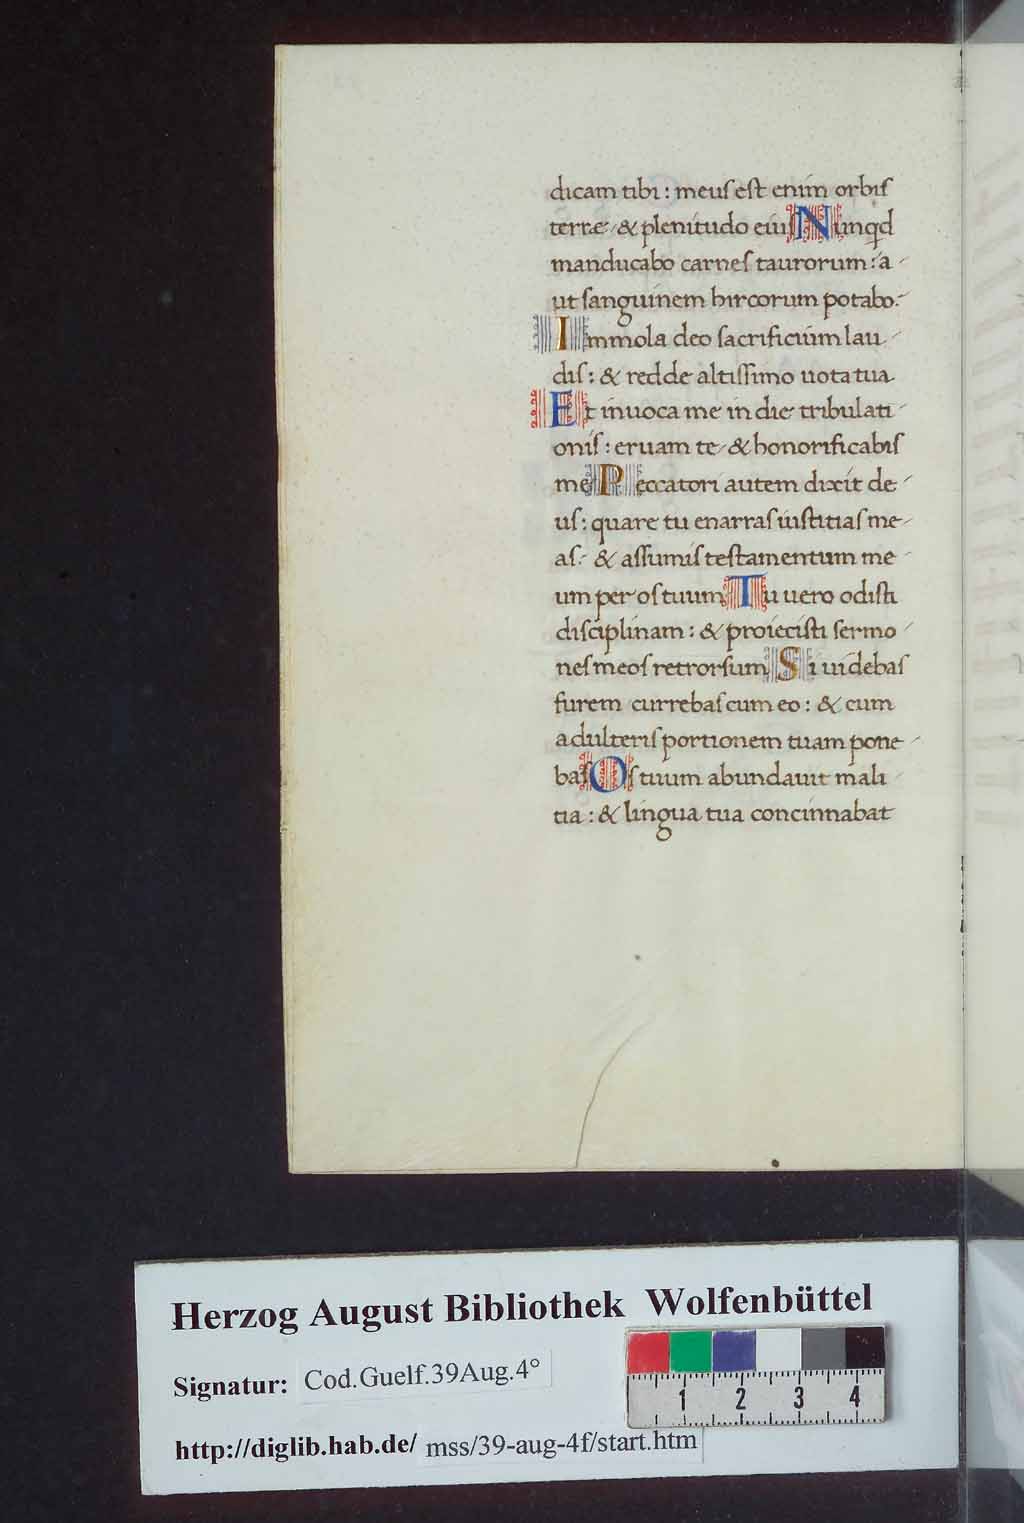 dicam tibi : meuſ eſt enim orbiſ
terræ & plenitudo eiuſ Nunqd
manducabo carneſ taurorum : a
ut ſanguinem hircorum potabo.
Immola deo ſacrificium lau
diſ : & redde altiſſimo uota tua
Et inuoca me in die tribulati
oniſ : eruam te & honorificabiſ
me Peccatori autem dixit de
uſ : quare tu enarraſ iuſtitiaſ me
aſ : & aſſumiſ teſtamentum me
um per oſ tuum Tu uero odiſti
diſciplinam : & proieciſti ſermo
neſ meoſ retrorſum Si uidebaſ
furem currebaſ cum eo : & cum
adulteriſ portionem tuam pone
baſ Oſ tuum abundauit mali
tia : & lingua tua concinnabat
Herzog August Bibliothek Wolfenbüttel
Signatur: Cod.Guelf.39Aug.4°
1 2 3 4
http://diglib.hab.de/ mss/39-aug-4f/start.htm